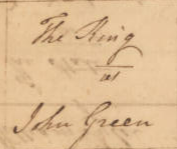 The King
at
John Green